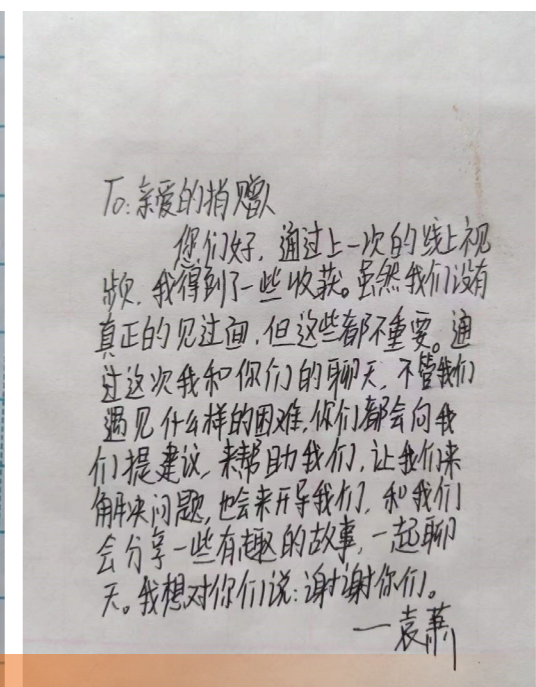 To:亲爱的捐赠人
您们好，通过上一次的线上视
频，我得到了一些收获。虽然我们没有
真正的见过面，但这些都不重要。通
过这次我和你们的聊天，不管我们
遇见什么样的困难，你们都会向我
们提建议，来帮助我们，让我们来
解决问题，也会来开导我们，和我们
会分享一些有趣的故事，一起聊
天。我想对你们说：谢谢你们。
—袁萧